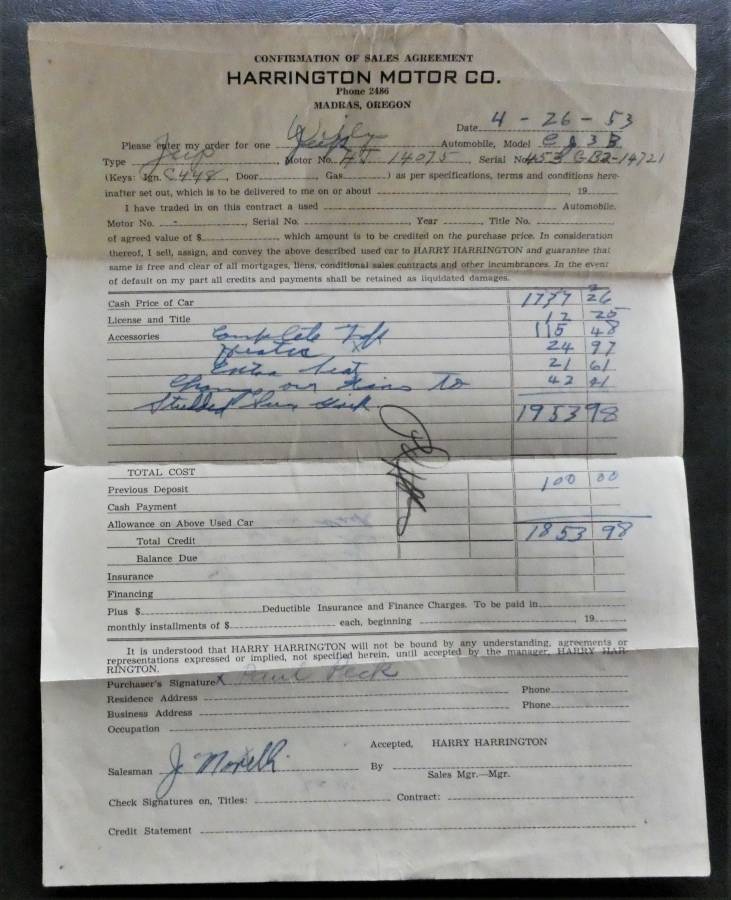 CONFIRMATION OF SALES AGREEMENT
HARRINGTON MOTOR CO.
Phone 2486
MADRAS, OREGON
Date 4 - 26 - 53
Please enter my order for one Willy Jeep Automobile, Model CJ3B
Type Jeep Motor No. 4J 14075, Serial No. 453 GB2-14721
(Keys: Ign. C448, Door Gas ) as per specifications, terms and conditions here-
inafter set out, which is to be delivered to me on or about , 19
I have traded in on this contract a used Automobile.
Motor No. - , Serial No. , Year , Title No.
of agreed value of $ , which amount is to be credited on the purchase price. In consideration
thereof, I sell, assign, and convey the above described used car to HARRY HARRINGTON and guarantee that
same is free and clear of all mortgages, liens, conditional sales contracts and other incumbrances. In the event
of default on my part all credits and payments shall be retained as liquidated damages.
Cash Price of Car 1737 26
License and Title 12 25
Accessories Complete Top 115 48
Heater 24 97
Extra Seat 21 61
Change over Tires to 42 41
Studded Sure Grip 1953 98
TOTAL COST
Previous Deposit 100 00
Cash Payment
Allowance on Above Used Car
Total Credit 1853 98
Balance Due
Insurance
Financing
Plus $ Deductible Insurance and Finance Charges. To be paid in
monthly installments of $ each, beginning 19
It is understood that HARRY HARRINGTON will not be bound by any understanding, agreements or
representations expressed or implied, not specified herein, until accepted by the manager, HARRY HAR-
RINGTON.
Purchaser's Signature X Paul Peck
Residence Address Phone
Business Address Phone
Occupation
Accepted, HARRY HARRINGTON
Salesman J. Morelli By
Sales Mgr.—Mgr.
Check Signatures on, Titles: Contract:
Credit Statement